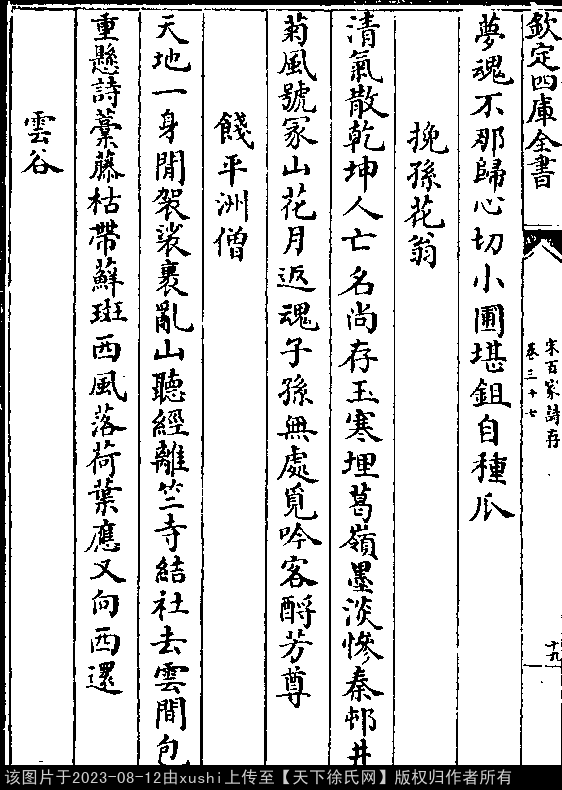 欽定四庫全書
宋百家詩存
卷三十七
十九
夢魂不那歸心切小圃堪鉏自種瓜
挽孫花翁
清氣散乾坤人亡名尚存玉寒埋葛嶺墨淡慘秦邨井
菊風號冢山花月返魂子孫無處覓吟客酹芳尊
餞平洲僧
天地一身閒袈裟裹亂山聽經離竺寺結社去雲間包
重懸詩藁藤枯帶蘚斑西風落荷葉應又向西還
雲谷
该图片于2023-08-12由xushi上传至【天下徐氏网】版权归作者所有